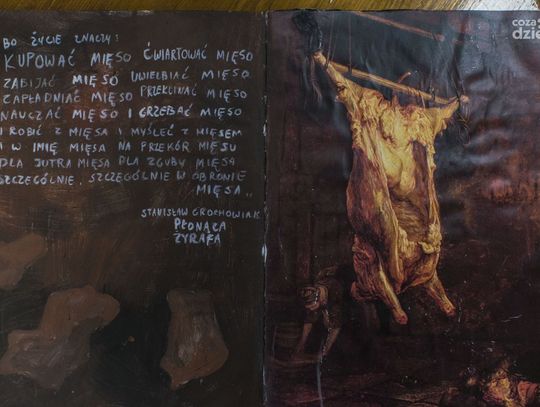 BO ŻYCIE ZNACZY:
KUPOWAĆ MIĘSO ĆWIARTOWAĆ MIĘSO
ZABIJAĆ MIĘSO UWIELBIAĆ MIĘSO
ZAPŁADNIAĆ MIĘSO PRZEKLINAĆ MIĘSO
NAUCZAĆ MIĘSO I GRZEBAĆ MIĘSO
I ROBIĆ Z MIĘSA I MYŚLEĆ Z MIĘSEM
I W IMIĘ MIĘSA NA PRZEKÓR MIĘSU
DLA JUTRA MIĘSA DLA ZGUBY MIĘSA
SZCZEGÓLNIE, SZCZEGÓLNIE W OBRONIE
MIĘSA..
STANISŁAW GROCHOWIAK
PŁONĄCA
ŻYRAFA